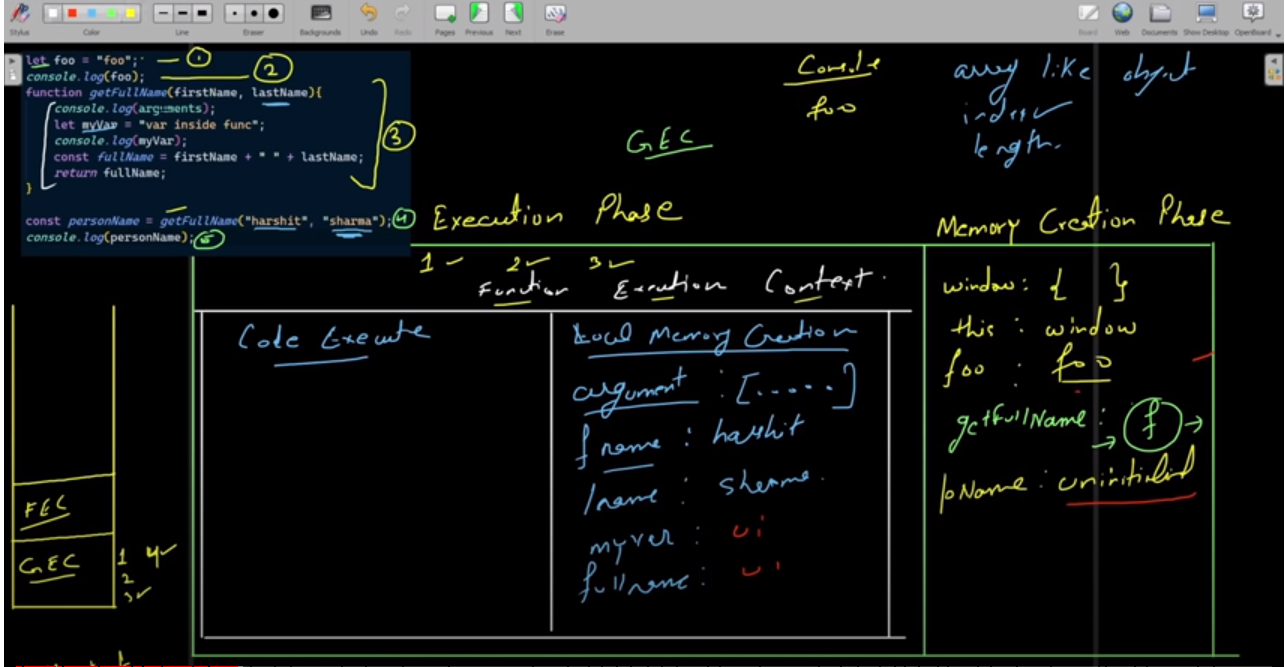 Stylus
Color
Line
Eraser
Backgrounds
Undo
Redo
Pages
Previous
Next
Erase
Board
Web
Documents
Show Desktop
OpenBoard
let foo = "foo"; 1
console.log(foo); 2
function getFullName(firstName, lastName){
console.log(arguments);
let myVar = "var inside func";
console.log(myVar);
const fullName = firstName + " " + lastName;
return fullName;
}
3
const personName = getFullName("harshit", "sharma"); 4
console.log(personName); 5
Console
foo
array like object
index
length.
GEC
Execution Phase
Memory Creation Phase
1 2 3
Function Execution Context.
Code Execute
Local Memory Creation
argument : [.....]
fname : harshit
lname : sharma.
myvar : ui
fullname : ui
window : { }
this : window
foo : foo
getFullName : f
pName : uninitialized
FEC
GEC
1 4
2
3